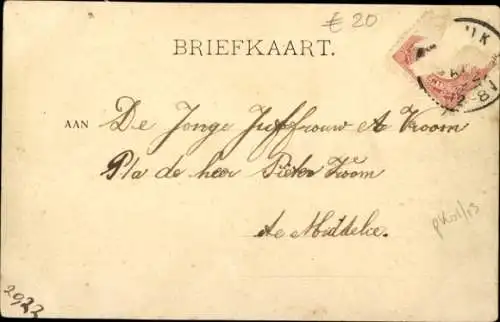 € 20
BRIEFKAART.
AAN De Jonge Juffrouw A Vroom
P/a de heer Pieter Vroom
te Middelie.
2922